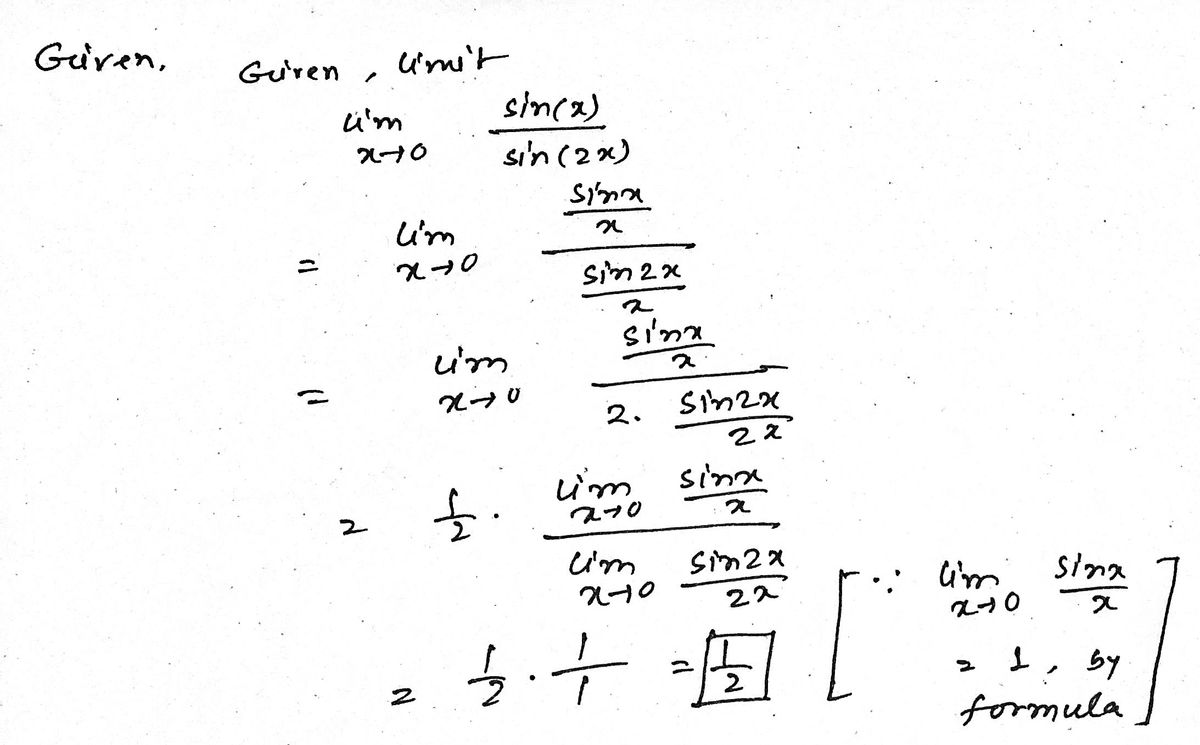 Given, Given, limit
lim x→0 sin(x) / sin(2x)
= lim x→0 (sinx / x) / (sin2x / x)
= lim x→0 (sinx / x) / (2. sin2x / 2x)
= 1/2 . (lim x→0 sinx / x) / (lim x→0 sin2x / 2x) [∵ lim x→0 sinx / x
= 1/2 . 1/1 = 1/2 = 1, by
formula]